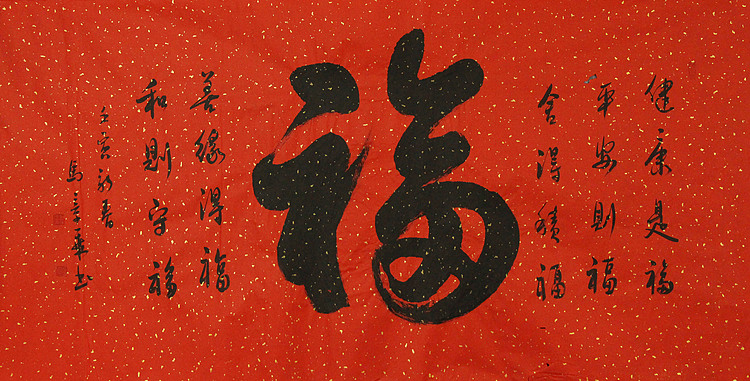 健康是福
平安則福
舍得積福
福
善緣得福
和則守福
壬寅新春
馬
華书